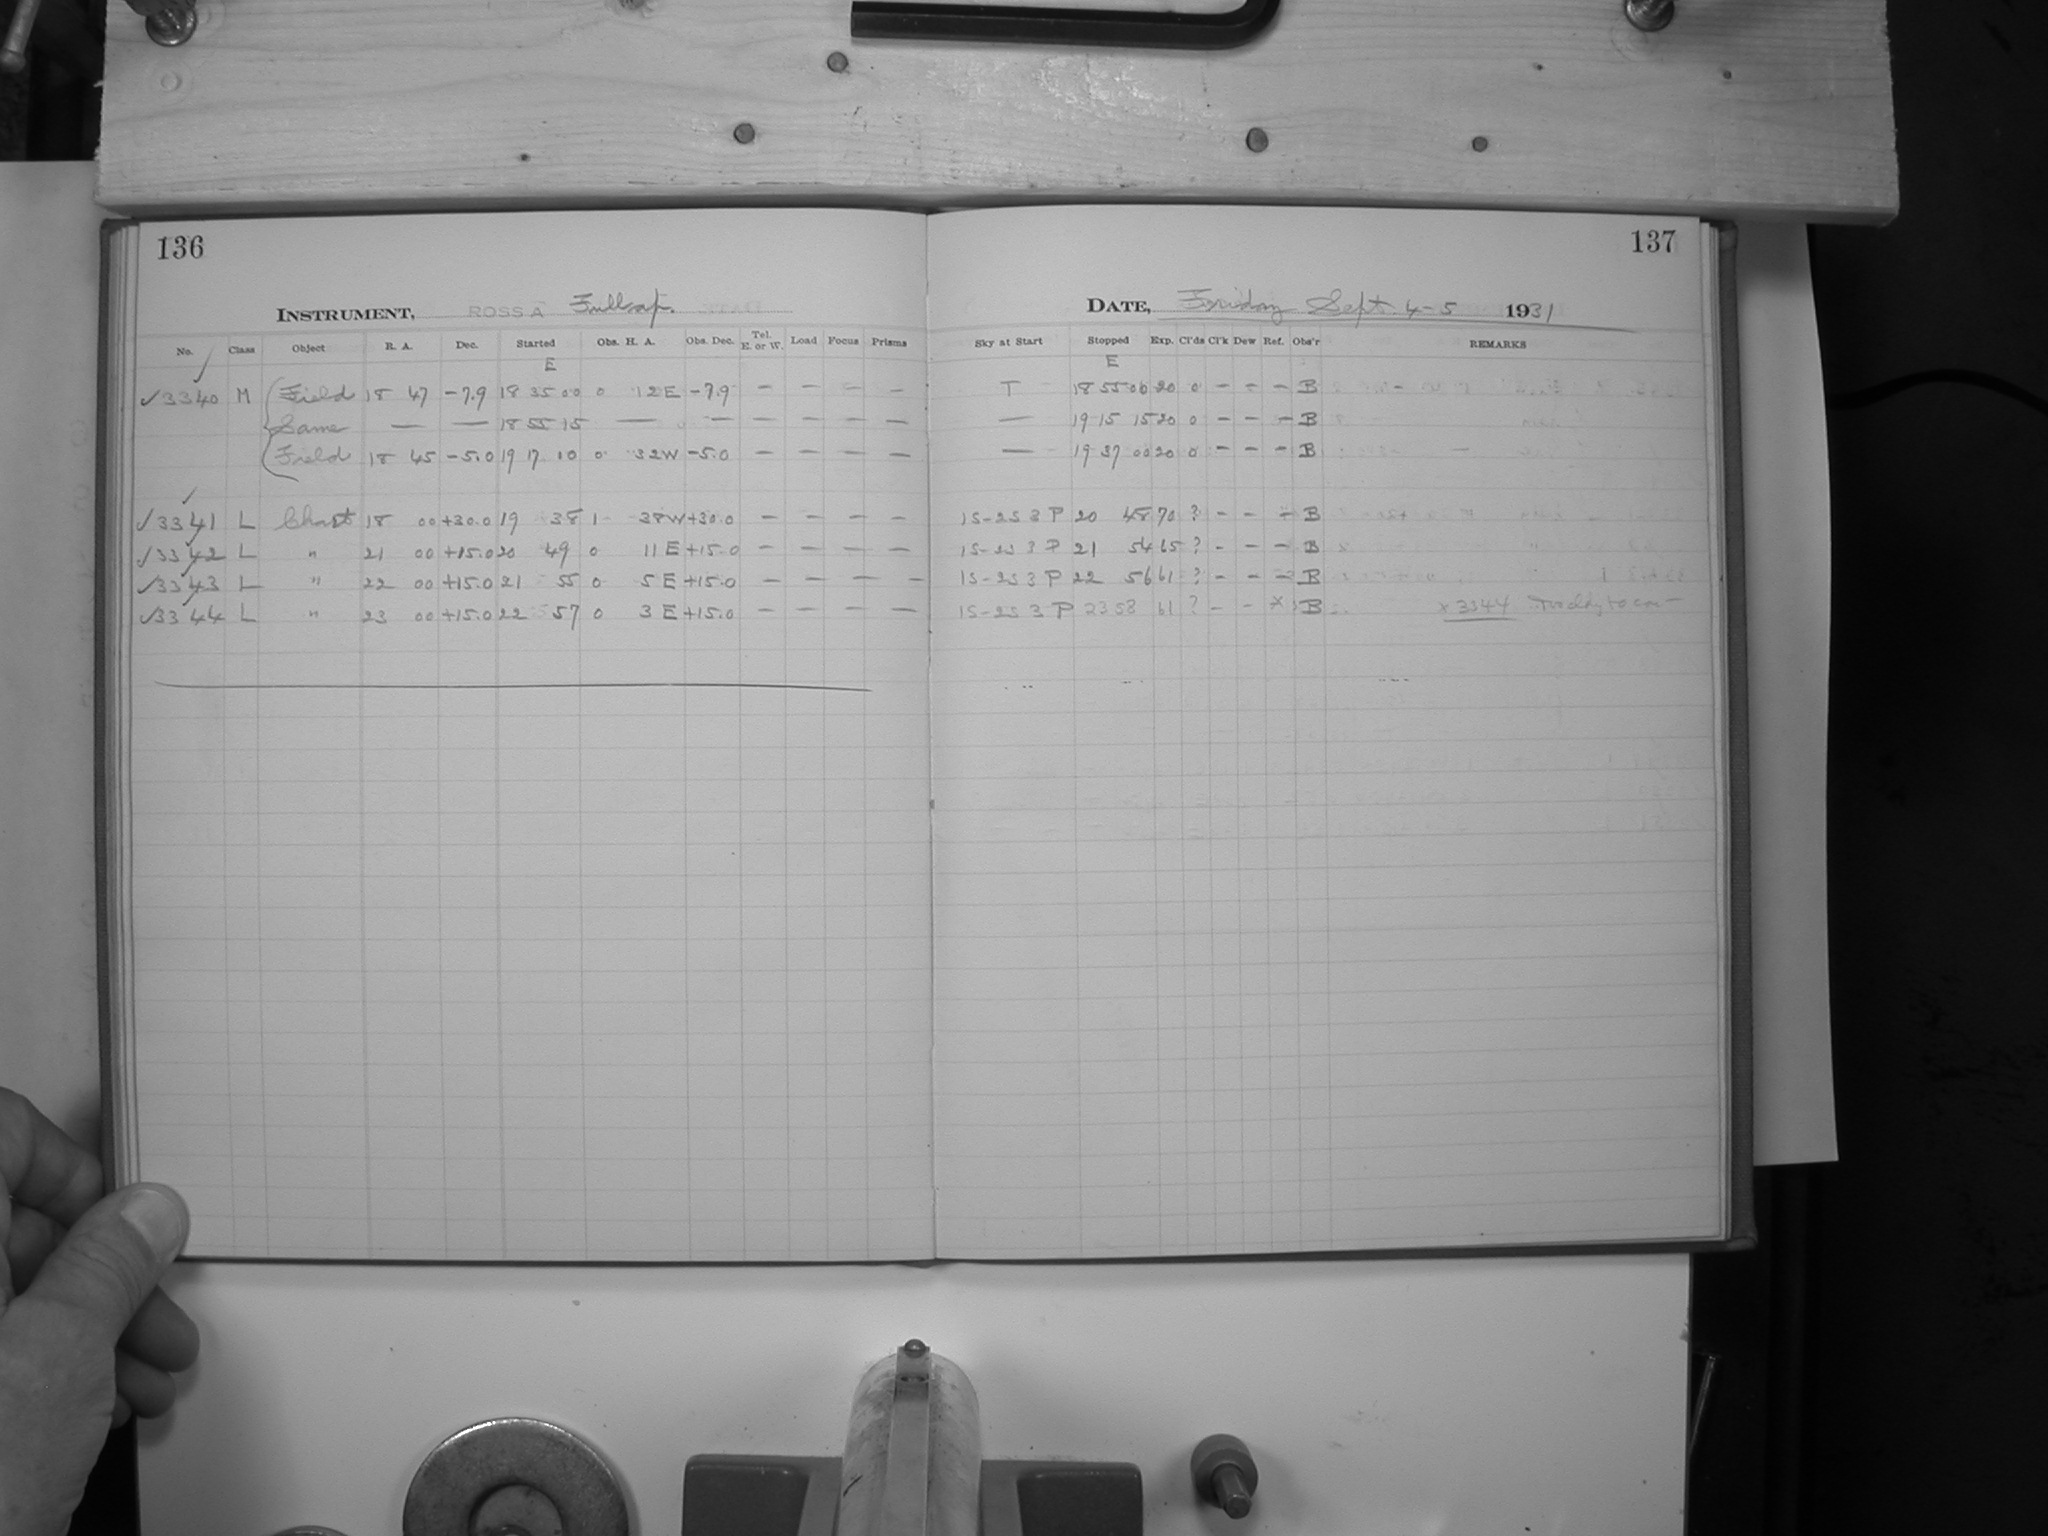 136
INSTRUMENT, ROSS A Fullap.
No. Class Object R. A. Dec. Started Obs. H. A. Obs. Dec. Tel. E. or W. Load Focus Prisms
E
✓3340 M Field 18 47 -7.9 18 35 00 0 12E -7.9 — — — —
Same — — 18 55 15 — — — — — —
Field 18 45 -5.0 19 17 00 0 32W -5.0 — — — —
✓3341 L Chart 18 00 +30.0 19 38 1 38W +30.0 — — — —
✓3342 L " 21 00 +15.0 20 49 0 11E +15.0 — — — —
✓3343 L " 22 00 +15.0 21 55 0 5E +15.0 — — — —
✓3344 L " 23 00 +15.0 22 57 0 3E +15.0 — — — —
137
DATE, Friday Sept. 4-5 1931
Sky at Start Stopped Exp. Cl'ds Cl'k Dew Ref. Obs'r REMARKS
E
T 18 55 00 20 0 - - - B
— 19 15 15 20 0 - - - B
— 19 37 00 20 0 - - - B
15-25 3 P 20 48 70 ? - - - B
15-25 3 P 21 54 65 ? - - - B
15-25 3 P 22 56 61 ? - - - B
15-25 3 P 23 58 61 ? - - x B x 3344